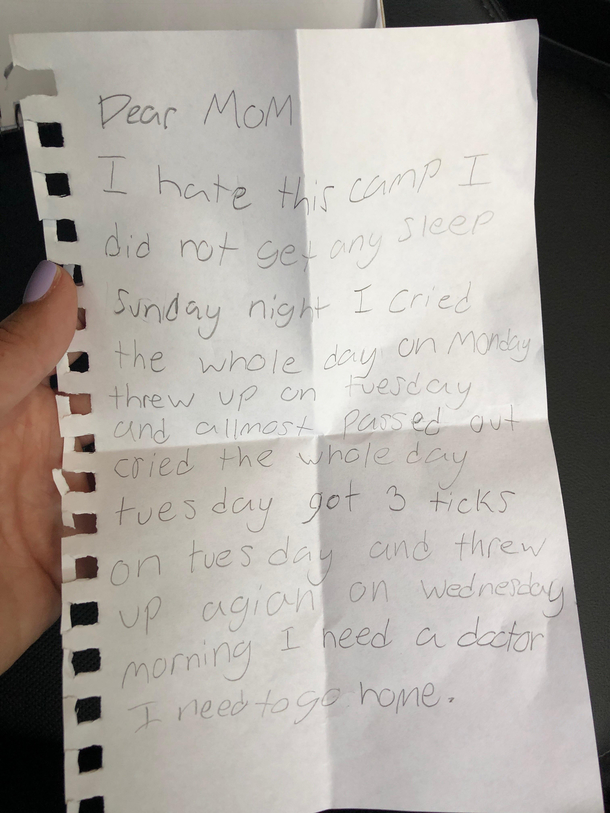 Dear MOM
I hate this camp I
did not get any sleep
sunday night I cried
the whole day on Monday
threw up on tuesday
and allmost passed out
cried the whole day
tuesday got 3 ticks
on tuesday and threw
up agian on wednesday
morning I need a doctor
I need to go home.